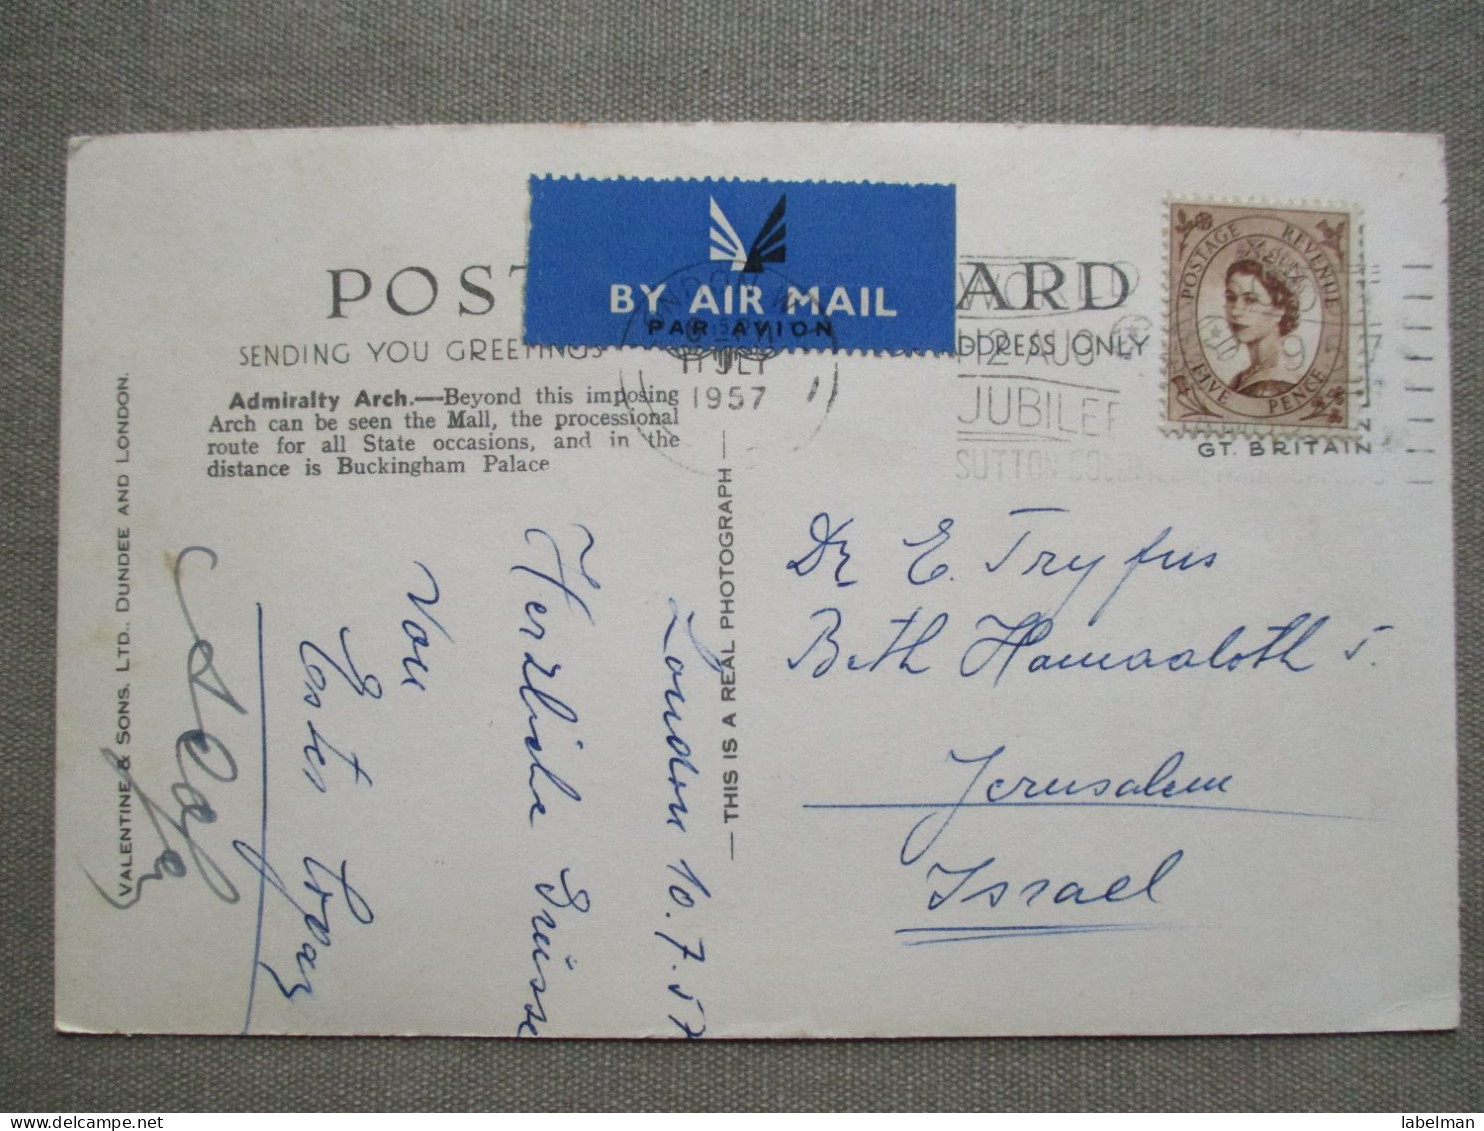 POST
ARD
BY AIR MAIL
PAR AVION
SENDING YOU GREETINGS
DDRESS ONLY
Admiralty Arch.—Beyond this imposing
Arch can be seen the Mall, the processional
route for all State occasions, and in the
distance is Buckingham Palace
11 JLY
1957
12 AUG
JUBILEE
SUTTON
POSTAGE REVENUE
FIVE PENCE
GT. BRITAIN
VALENTINE & SONS, LTD., DUNDEE AND LONDON.
— THIS IS A REAL PHOTOGRAPH —
London 10.7.57
Herzliche Grüsse
Von
Ester
Dr E. Tryfus
Beth Hamaaloth 5.
Jerusalem
Israel
© labelman
delcampe.net